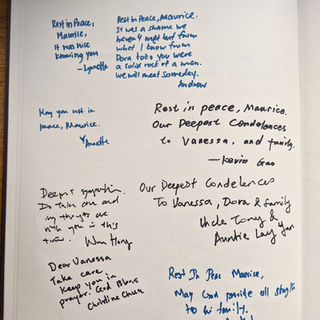 Rest in Peace,
Maurice,
It was nice
knowing you
- Lynette
Rest in Peace, Maurice.
It was a shame we
haven't met but from
what I know from
Dora tofo you were
a solid rock of a man.
we will meet someday.
Andrew
May you rest in
peace, Maurice.
Annette
Rest in peace, Maurice.
Our Deepest Condolences
to Vanessa, and family.
- Kevin Gao
Deepest sympathies.
Do take care and
my thoughts are
with you in this
time.
Our Deepest Condelences
To Vanessa, Dora & family
Uncle Tony &
Auntie Lay Yan
Dear Vanessa
Take care
keep you in
prayer. God Bless
Christine Chua
Rest In Peac Maurice,
May God provide all
to his family.